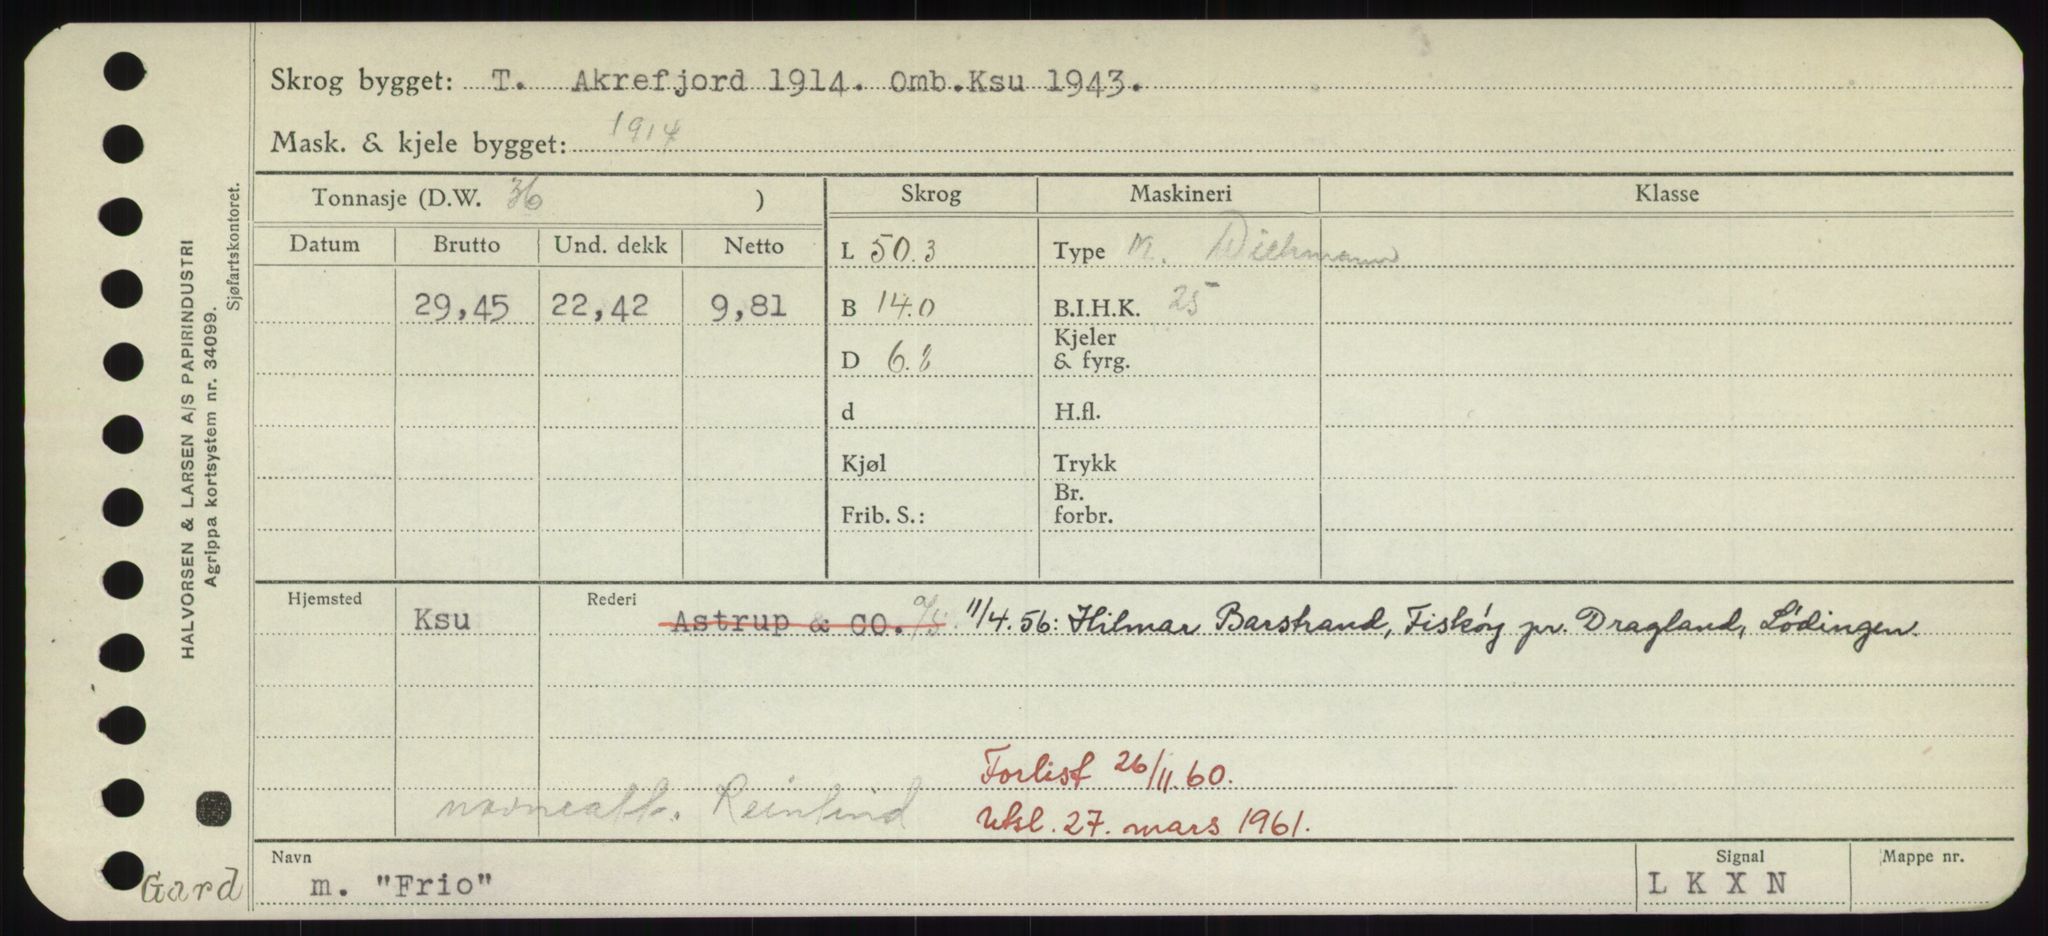 Skrog bygget: T. Akrefjord 1914. Omb.Ksu 1943.
Mask. & kjele bygget: 1914
Tonnasje (D.W. 36 )
Skrog
Maskineri
Klasse
Datum
Brutto
Und. dekk
Netto
29,45
22,42
9,81
L 50.3
B 14.0
D 6.8
d
Kjøl
Frib. S.:
Type M. Wichmann
B.I.H.K. 25
Kjeler
& fyrg.
H.fl.
Trykk
Br.
forbr.
Hjemsted
Ksu
Rederi
Astrup & CO. 11/4.56: Hilmar Barstrand, Fiskøy pr. Dragland, Lødingen.
Forlist 26/11.60.
navneatt. Reinlind
Utsl. 27. mars 1961.
Navn
m. "Frio"
Signal
LKXN
Mappe nr.
HALVORSEN & LARSEN A/S PAPIRINDUSTRI
Agrippa kortsystem nr. 34099.
Sjøfartskontoret.
Gard